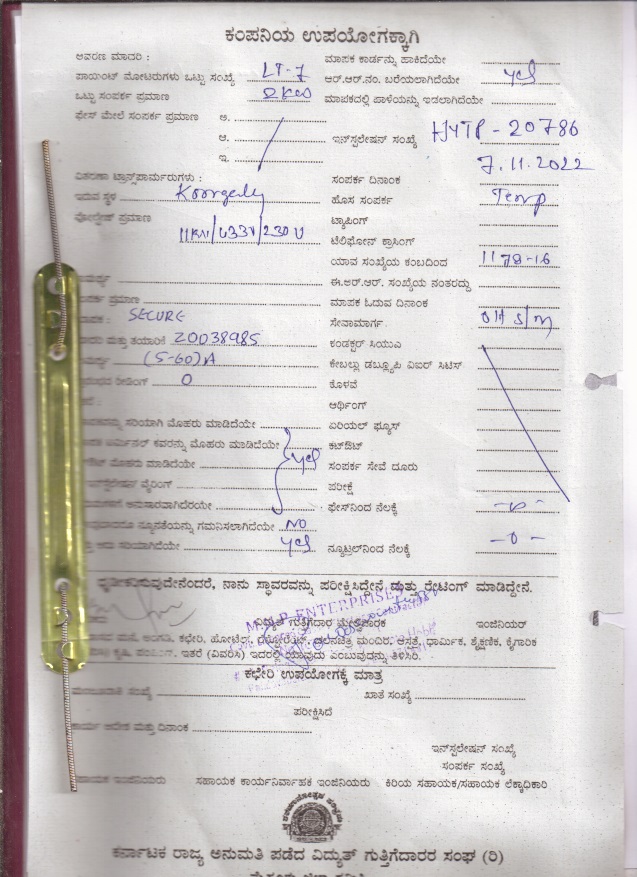 ಕಂಪನಿಯ ಉಪಯೋಗಕ್ಕಾಗಿ
ಆವರಣ ಮಾದರಿ : ಮಾಪಕ ಕಾರ್ಡನ್ನು ಹಾಕಿದೆಯೇ
ಪಾಯಿಂಟ್ ಮೋಟರುಗಳು ಒಟ್ಟು ಸಂಖ್ಯೆ LT-7 ಆರ್.ಆರ್.ನಂ. ಬರೆಯಲಾಗಿದೆಯೇ yes
ಒಟ್ಟು ಸಂಪರ್ಕ ಪ್ರಮಾಣ 2KW ಮಾಪಕದಲ್ಲಿ ಪಾಳಿಯನ್ನು ಇಡಲಾಗಿದೆಯೇ
ಫೇಸ್ ಮೇಲೆ ಸಂಪರ್ಕ ಪ್ರಮಾಣ ಅ.
ಆ. ಇನ್‌ಸ್ಟಲೇಷನ್ ಸಂಖ್ಯೆ HYTP - 20786
ಇ. 7.11.2022
ವಿತರಣಾ ಟ್ರಾನ್ಸ್‌ಫಾರ್ಮರುಗಳು : ಸಂಪರ್ಕ ದಿನಾಂಕ
ಇರುವ ಸ್ಥಳ Koorgely ಹೊಸ ಸಂಪರ್ಕ Temp
ವೋಲ್ಟೇಜ್ ಪ್ರಮಾಣ 11KV/433V/230V ಟ್ಯಾಪಿಂಗ್
ಟೆಲಿಫೋನ್ ಕ್ರಾಸಿಂಗ್
ಯಾವ ಸಂಖ್ಯೆಯ ಕಂಬದಿಂದ 1178-16
ಈ.ಆರ್.ಆರ್. ಸಂಖ್ಯೆಯ ನಂತರದ್ದು
ಪ್ರಮಾಣ ಮಾಪಕ ಓದುವ ದಿನಾಂಕ
SECURE ಸೇವಾಮಾರ್ಗ OH S/M
ಮತ್ತು ತಯಾರಿಕೆ 20038985 ಕಂಡಕ್ಟರ್ ಸಿಯುಎ
(5-60)A ಕೇಬಲ್ಲು ಡಬ್ಲ್ಯೂಪಿ ವಿಐರ್ ಸಿಟಿಸ್
ರೀಡಿಂಗ್ 0 ಕೊಳವೆ
ಅರ್ಥಿಂಗ್
ಸರಿಯಾಗಿ ಮೊಹರು ಮಾಡಿದೆಯೇ ಏರಿಯಲ್ ಫ್ಯೂಸ್
ಟರ್ಮಿನಲ್ ಕವರನ್ನು ಮೊಹರು ಮಾಡಿದೆಯೇ ಕಟ್‌ಔಟ್
ಮೊಹರು ಮಾಡಿದೆಯೇ yes ಸಂಪರ್ಕ ಸೇವೆ ದೂರು
ವೈರಿಂಗ್ ಪರೀಕ್ಷೆ
ಅನುಸಾರವಾಗಿದೆಯೇ ಫೇಸ್‌ನಿಂದ ನೆಲಕ್ಕೆ -0-
ನ್ಯೂನತೆಯನ್ನು ಗಮನಿಸಲಾಗಿದೆಯೇ NO
ಸರಿಯಾಗಿದೆಯೇ yes ನ್ಯೂಟ್ರಲ್‌ನಿಂದ ನೆಲಕ್ಕೆ -0-
ನಾನು ಸ್ಥಾವರವನ್ನು ಪರೀಕ್ಷಿಸಿದ್ದೇನೆ ಮತ್ತು ರೇಟಿಂಗ್ ಮಾಡಿದ್ದೇನೆ.
ENTERPRISES
ವಿದ್ಯುತ್ ಗುತ್ತಿಗೆದಾರ ಮೇಲ್ವಿಚಾರಕ ಇಂಜಿನಿಯರ್
ಮನೆ, ಅಂಗಡಿ, ಕಛೇರಿ, ಹೋಟೆಲ್, ಮಂದಿರ, ಆಸ್ಪತ್ರೆ, ಧಾರ್ಮಿಕ, ಶೈಕ್ಷಣಿಕ, ಕೈಗಾರಿಕ
ಕೃಷಿ, ಇತರೆ (ವಿವರಿಸಿ) ಇದರಲ್ಲಿ ಯಾವುದು ಎಂಬುವುದನ್ನು ತಿಳಿಸಿರಿ.
ಕಛೇರಿ ಉಪಯೋಗಕ್ಕೆ ಮಾತ್ರ
ಮಂಜೂರಾತಿ ಸಂಖ್ಯೆ ಖಾತೆ ಸಂಖ್ಯೆ
ಪರೀಕ್ಷಿಸಿದೆ
ಕಾರ್ಯ ಆದೇಶ ಮತ್ತು ದಿನಾಂಕ
ಇನ್‌ಸ್ಟಲೇಷನ್ ಸಂಖ್ಯೆ
ಸಂಪರ್ಕ ಸಂಖ್ಯೆ
ಸಹಾಯಕ ಇಂಜಿನಿಯರು ಸಹಾಯಕ ಕಾರ್ಯನಿರ್ವಾಹಕ ಇಂಜಿನಿಯರು ಕಿರಿಯ ಸಹಾಯಕ/ಸಹಾಯಕ ಲೆಕ್ಕಾಧಿಕಾರಿ
ಕರ್ನಾಟಕ ರಾಜ್ಯ ಅನುಮತಿ ಪಡೆದ ವಿದ್ಯುತ್ ಗುತ್ತಿಗೆದಾರರ ಸಂಘ (ರಿ)